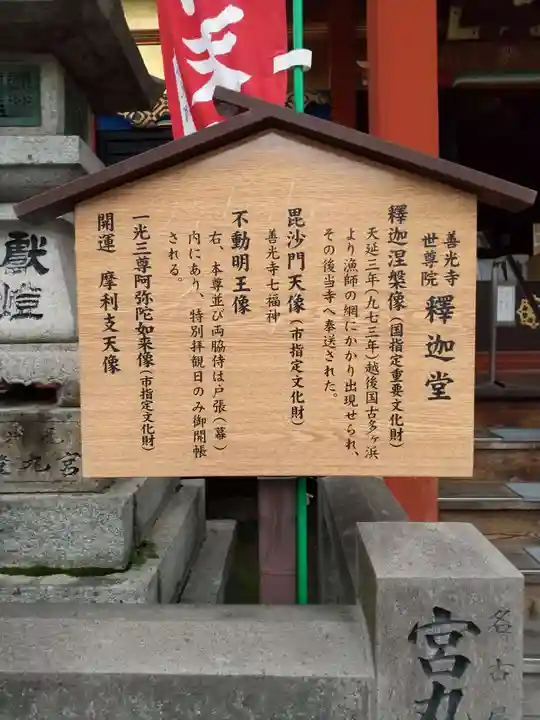 善光寺
世尊院
釋迦堂
釋迦涅槃像（国指定重要文化財）
天延三年（九七三年）越後国古多ヶ浜
より漁師の網にかかり出現せられ、
その後当寺へ奉送された。
毘沙門天像（市指定文化財）
善光寺七福神
不動明王像
右、本尊並び両脇侍は戸張（幕）
内にあり、特別拝観日のみ御開帳
される。
一光三尊阿弥陀如来像（市指定文化財）
開運　摩利支天像
献燈
宮丸
名古屋